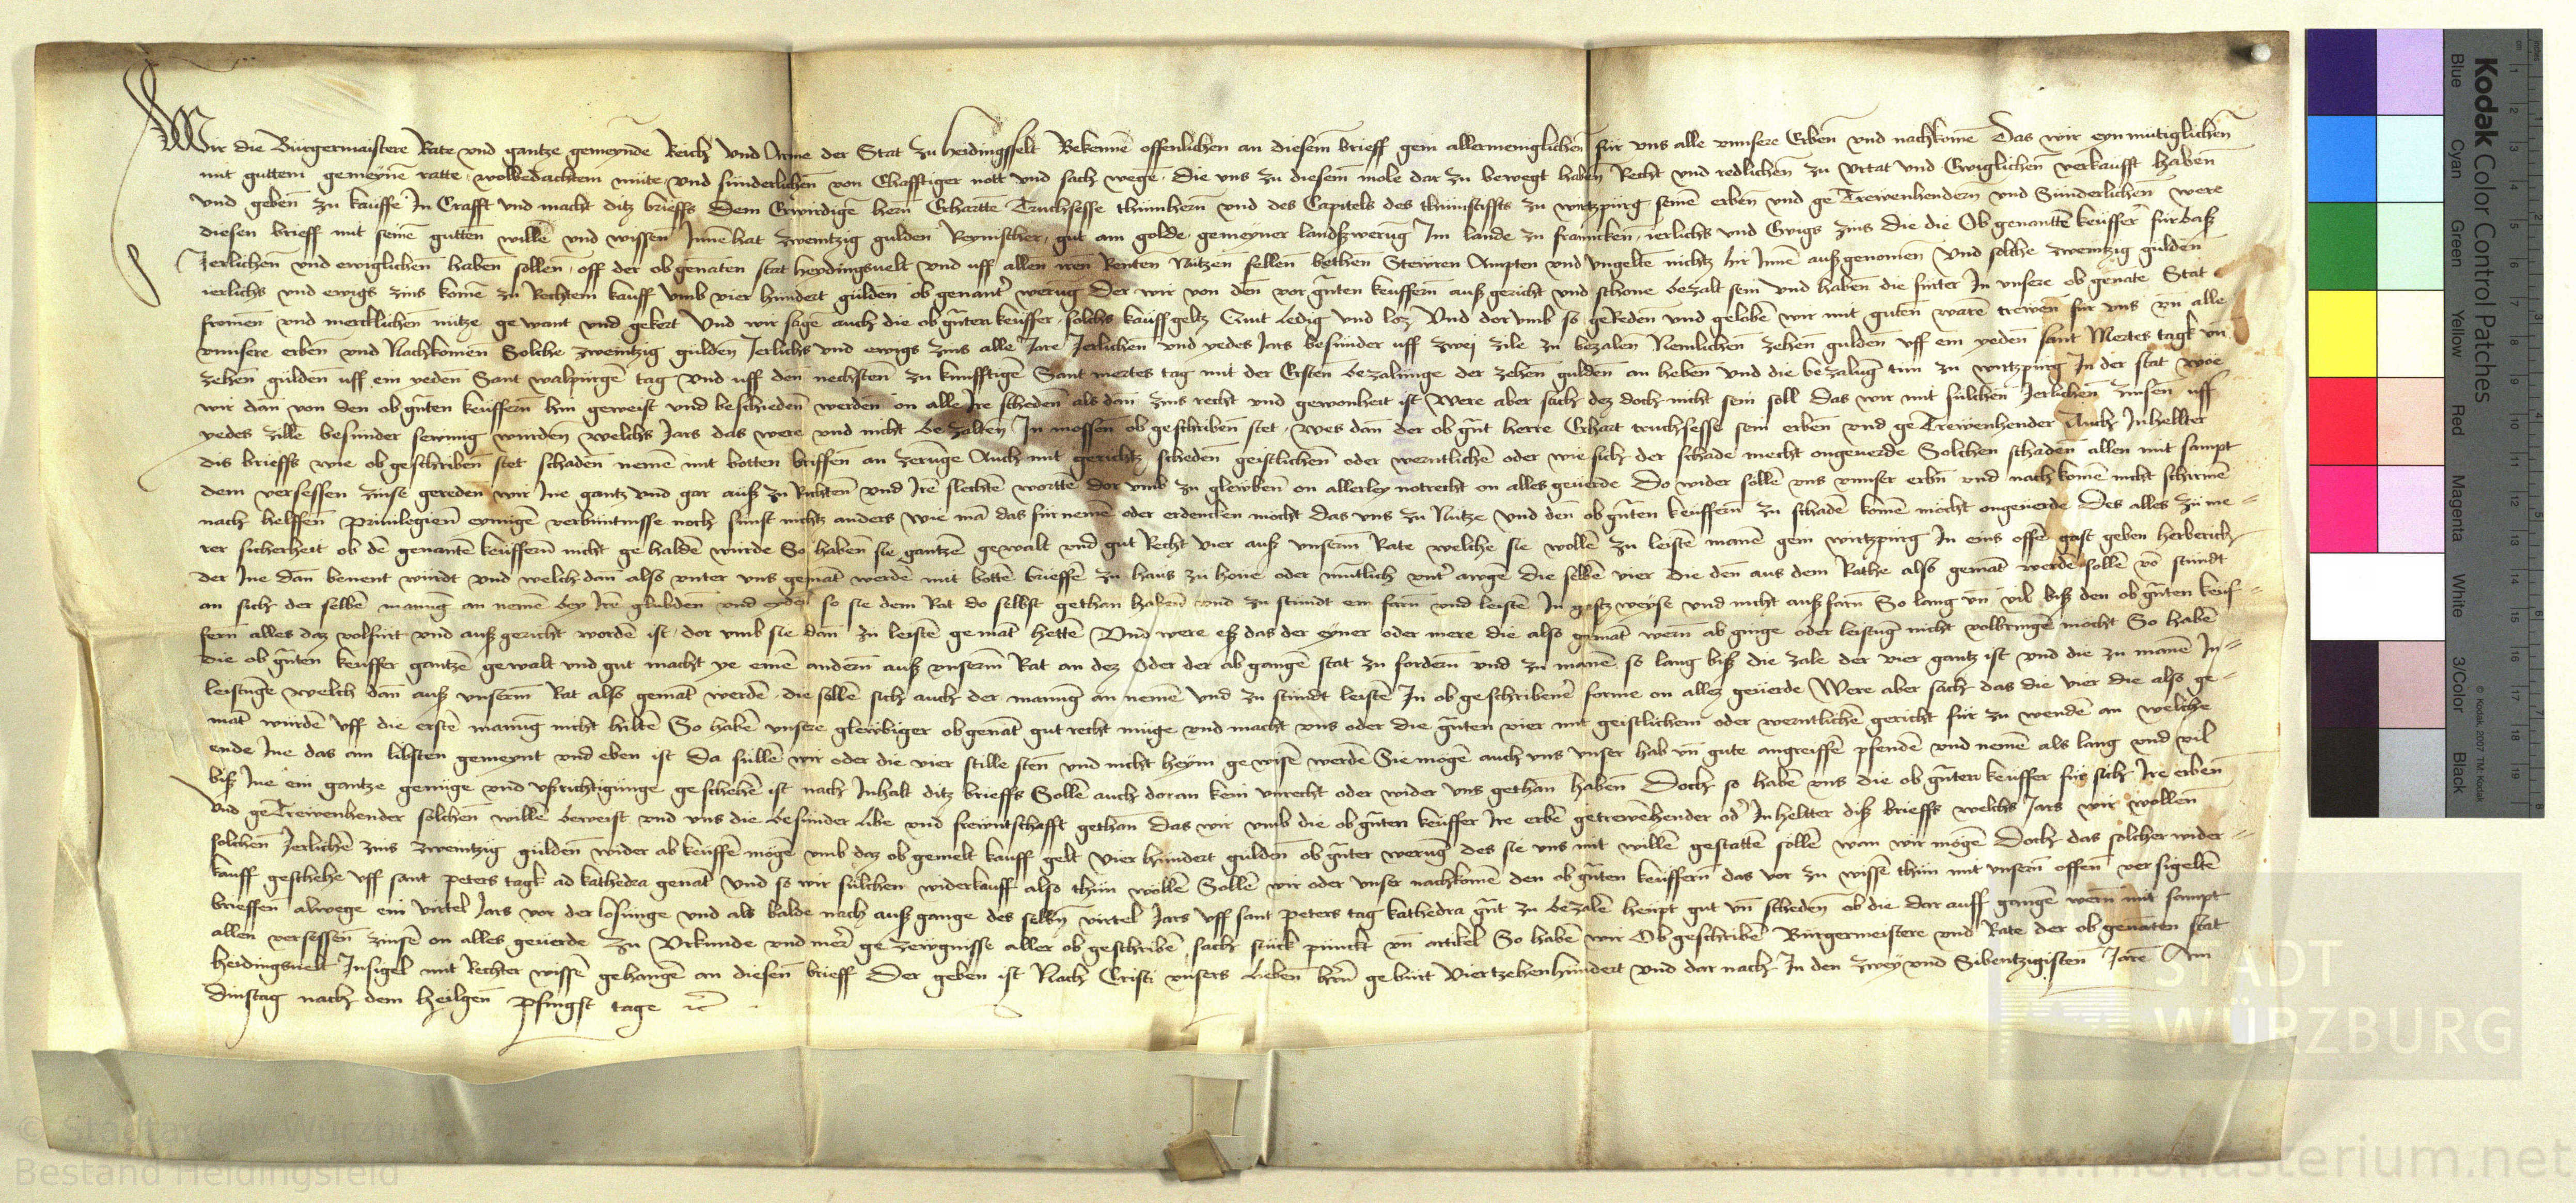 Wir die Burgermaistere Rate und gantze gemeynde Reich und Arme der Stat zu heidingsfelt Bekennē offenlichen an diesem brieff gein allermeniglichen für uns alle vnnsere Erben und nachkomē Das wir eynmutiglichen
mit guttem gemeynē ratte wolbedachtem mute und sunderlichen von Ehafftiger nott und sach wegē die uns zu diesem mole dar zu bewegt haben Recht und redlichen zu Urtat und Ewiglichen verkaufft haben
und geben zu kauffe In Crafft und macht ditz brieffs Dem Erwirdigē hern Erhartte Truchsesse thumhern und des Capitels des thumstiffts zu wirtzpurg seinē erben und getrewenhendern und Sunderlichen were
diesen brieff mit seinē gutten willē und wissen Innehat zwentzig gulden Reynischer gut am golde gemeyner landßwerug Im lande zu francken ierlichs und Ewigs zins die die Obgenantē keuffer fürbaß
Jerlichen und ewiglichen haben sollen off der obgenatēn stat heydingsvelt und uff allen iren Renten Nützen fellen bethen Stewren Ampten und ungeltē nichtz hir Innē außgenomen und solche zwentzig gulden
ierlichs und ewigs zins komē zu Rechtem kauff umb vier hundert gulden obgenantr werug Der wir von den vorgnten keuffern außgericht und schone bezalt sein und haben die furter In unsere obgenāte Stat
fromen und mercklichen nutze gewant und gekert Und wir sagē auch die obgnten keuffer solchs kauffgeltz Quit ledig und loz Und dor umb so gereden und geloben wir mit guten waren trewen für uns un alle
vnnsere erben und Nachkomen Solche zwentzig gulden Jerlichs und ewigs zins alle Jare Jerlichen und yedes Jars besunder uff zwei zile zu bezalen Nemlichen zehen gulden uff ein yeden sant Mertes tagk un
zehen gulden uff ein yeden Sant walpurgē tag und uff den nechsten zu kunfftigē Sant mertes tag mit der Ersten bezalunge der zehen gulden an heben und die bezalug tun zu wirtzpurg In der stat woe
wir dan von den obgnten keuffern hin geweist und bescheiden werden on alle Ire scheden als dan zins recht und gewonheit ist Were aber sach dez doch nicht sein soll das wir mit sulchen Jerlichen zinsen uff
yedes zille besunder sewmig wurden welchs Jars das were und nicht bezalten In mossen obgeschriben stet wes dan der obgnt herre Erhart truchsesse sein erben und getrewenhender Auch Inhellter
dis brieffs wie obgeschriben stet schaden nemē mit botten briffen an zerunge Auch mit gerichtz scheden geistlichen oder werntlichē oder wie sich der schade mecht ongeuerde Solchen schaden allen mit sampt
dem versessen zinse gereden wir Ine gantz und gar auß zu Richten und Irē slechtē wortte dor umb zu glewben on allerley notrecht on alles geuerde Do wider sollē uns unnser erbn und nachkomē nicht schirmē
nach helffen priuilegien eynigē verbüntnisse noch sünst nichtz anders wie mā das fürnemē oder erdencken möcht das uns zu Nutze und den obgnten keuffern zu schadē komē möcht ongeuerde Des alles zu me-
rer sicherheit ob dē genanten keuffern nicht gehaldē würde So haben sie gantzen gewalt und gut Recht vier auß unserm Rate welche sie wollē zu leistē manē gein wirtzpurg In eins offē gastgeben herberich
der Ine dan benent würdt und welch dan also unter uns gemāt werdē mit bottē brieffe zu haus zu hoüe oder mūtlich untr awgē die selbē vier die den aus dem Rathe also gemāt werdē sollē vō stundt
an sich der selbē manūg an nemē bey Irē glubden und eyden so sie dem Rat do selbst gethan haben und zu stundt ein farn und leistē In gastz weyse und nicht außfarn So lang un vil biß den obgnten keuf-
fern alles daz volfurt und außgericht wordē ist dor umb sie dan zu leistē gemāt hettē Und were eß das der eyner oder mere die also gemāt wern ab ginge oder leistūg nicht volbringē mocht So habē
die obgnten keuffer gantzē gewalt und gut macht ye einē andern auß unserm Rat an dez Oder der abgangē stat zu fordern und zu manē so lang biß die zale der vier gantz ist und die zu manē In-
leistūge welch dan auß unserm Rat also gemāt werdē die sollē sich auch der manūg an nemē und zu stundt leistē In obgeschribenr forme on allez geüerde Were aber sach das die vier die also ge-
māt würdē uff die erstē manūg nicht hiltē So habē unsere glewbiger obgenāt gut recht müge und macht uns oder die gnten vier mit geistlichem oder werntlichē gericht für zu wendē an welche
ende Ine das am libsten gemeynt und eben ist Da süllē wir oder die vier stille sten und nicht heym gewisē werdē Sie mögē auch uns unser hab un gute angreiffē pfendē und nemē als lang und vil
biß Ine ein gantze genüge und ußrichtigünge geschehē ist nach Inhalt ditz brieffs Sollē auch doran kein unrecht oder wider uns gethan haben Doch so habē uns die obgnten keuffer für sich Ire erben
und getrewenhender solchen willē beweist und uns die besunder libe und frewntschafft gethan Das wir umb die obgnten keuffer Ire erbē getrewēhender odr Inheltter diß brieffs welchs Jars wir wollen
solchen Jerlichē zins zwentzig gulden wider ab keuffē mögē umb daz obgemelt kauffgelt vier hundert gulden obgnter werug des sie uns mit willē gestattē sollē wan wir mögē Doch das solcher wider-
kauff geschehe uff sant peters tagk ad kathedra genāt und so wir sülchen widerkauff also thun wollē Sollē wir oder unser nachkomē den obgnten keuffern das vor zu wissē thun mit unsern offen versigeltē
brieffen alwege ein virtel Jars vor der losunge und als balde nach außgange des selbn virtel Jars uff sant peters tag kathedra gnt zu bezalē heupt gut un scheden ob die dar auff gangē wern mit sampt
allen versessen zinsē on alles geüerde Zu Urkunde und merer gezewgnisse aller obgeschribē sach stück pünckt un artikel So habē wir Obgeschribē Bürgermeistere und Rate der obgenāten stat
heidingsuelt Insigel mit Rechter wissē gehangē an diesen brieff Der geben ist Nach Cristi unsers lieben hrn gebürt Viertzehenhundert und dar nach In den Zwey und Sibentzigisten Jare Am
dinstag nach dem heilgen pfingst tage ꝛc
© Stadtarchiv Würzburg
Bestand Heidingsfeld
STADT
WÜRZBURG
www.monasterium.net
Kodak Color Control Patches
Blue Cyan Green Yellow Red Magenta White 3/Color Black
© Kodak, 2007 TM: Kodak